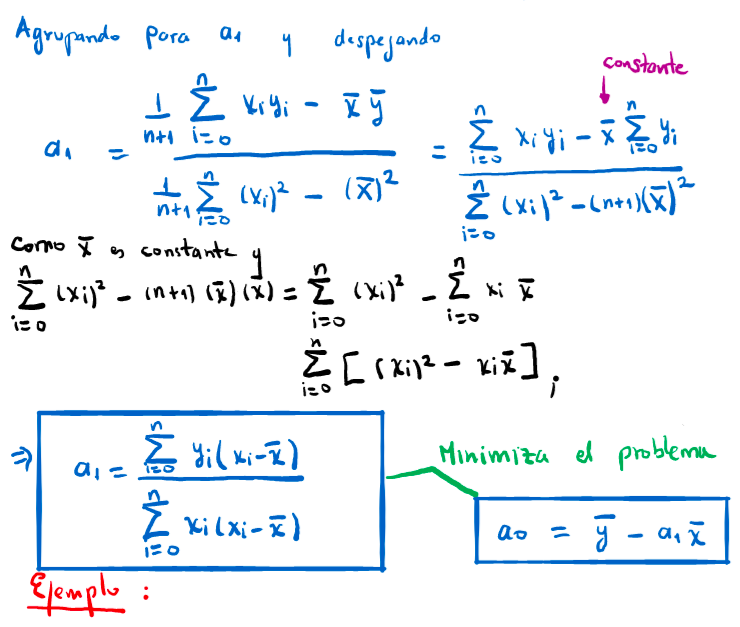 Agrupando para a₁ y despejando
constante
a₁ = (1/(n+1) ∑_{i=0}^{n} xᵢyᵢ − x̄ ȳ) / (1/(n+1) ∑_{i=0}^{n} (xᵢ)² − (x̄)²) = (∑_{i=0}^{n} xᵢyᵢ − x̄ ∑_{i=0}^{n} yᵢ) / (∑_{i=0}^{n} (xᵢ)² − (n+1)(x̄)²)
Como x̄ es constante y
∑_{i=0}^{n} (xᵢ)² − (n+1) (x̄)(x̄) = ∑_{i=0}^{n} (xᵢ)² − ∑_{i=0}^{n} xᵢ x̄
∑_{i=0}^{n} [(xᵢ)² − xᵢx̄],
⇒ a₁ = (∑_{i=0}^{n} yᵢ(xᵢ−x̄)) / (∑_{i=0}^{n} xᵢ(xᵢ−x̄))
Minimiza el problema
a₀ = ȳ − a₁x̄
Ejemplo :